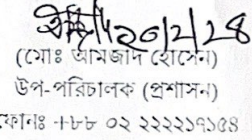 ২০/২/২৪
(মোঃ আমজাদ হোসেন)
উপ-পরিচালক (প্রশাসন)
ফোনঃ +৮৮ ০২ ২২২২১৭১৫৪